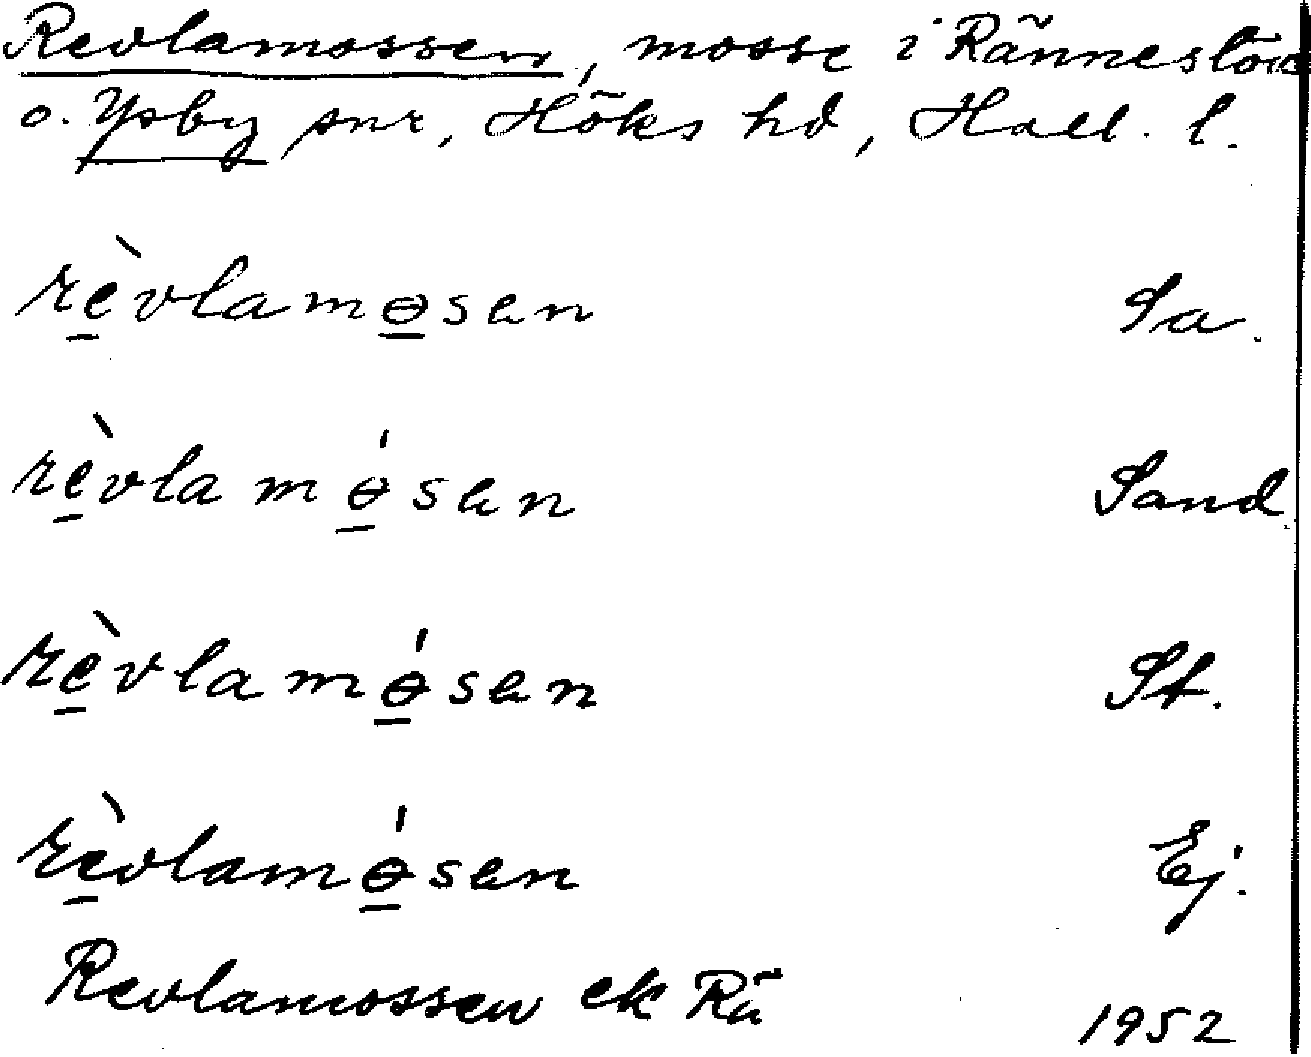 Revlamossen, mosse i Ränneslöv
o. Ysby snr, Höks hd, Hall. l.
rè̱vlamɵ̱sen Sa.
rè̱vlamɵ̱́sen Sand
rè̱vlamɵ̱́sen St.
rè̱vlamɵ̱́sen Ej.
Revlamossen ek Rä 1952